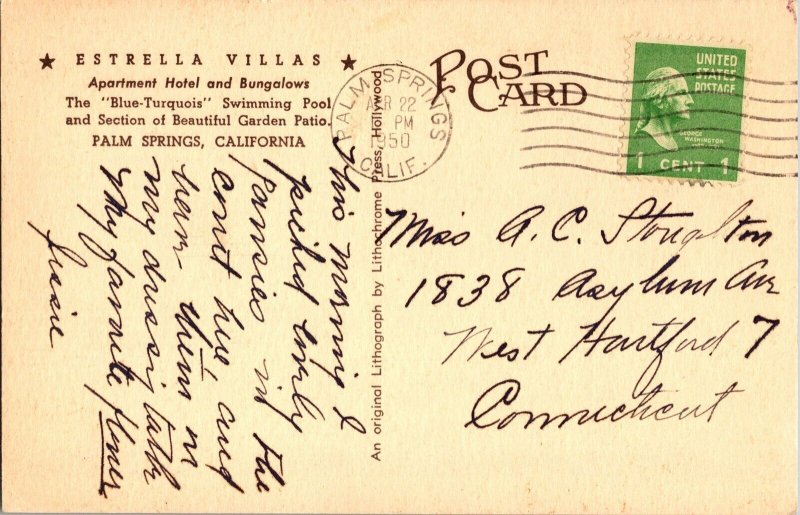 ★ ESTRELLA VILLAS ★
Apartment Hotel and Bungalows
The "Blue-Turquois" Swimming Pool
and Section of Beautiful Garden Patio.
PALM SPRINGS, CALIFORNIA
This morning I
picked lovely
pansies in the
court here, and
have them on
my dressing table
My favorite flower
Jessie
An original Lithograph by Lithochrome Press, Hollywood
POST
CARD
PALM SPRINGS
APR 22
PM
1950
CALIF.
UNITED
STATES
POSTAGE
GEORGE
WASHINGTON
1 CENT 1
Miss A. C. Stoughton
1838 Asylum Ave
West Hartford 7
Connecticut